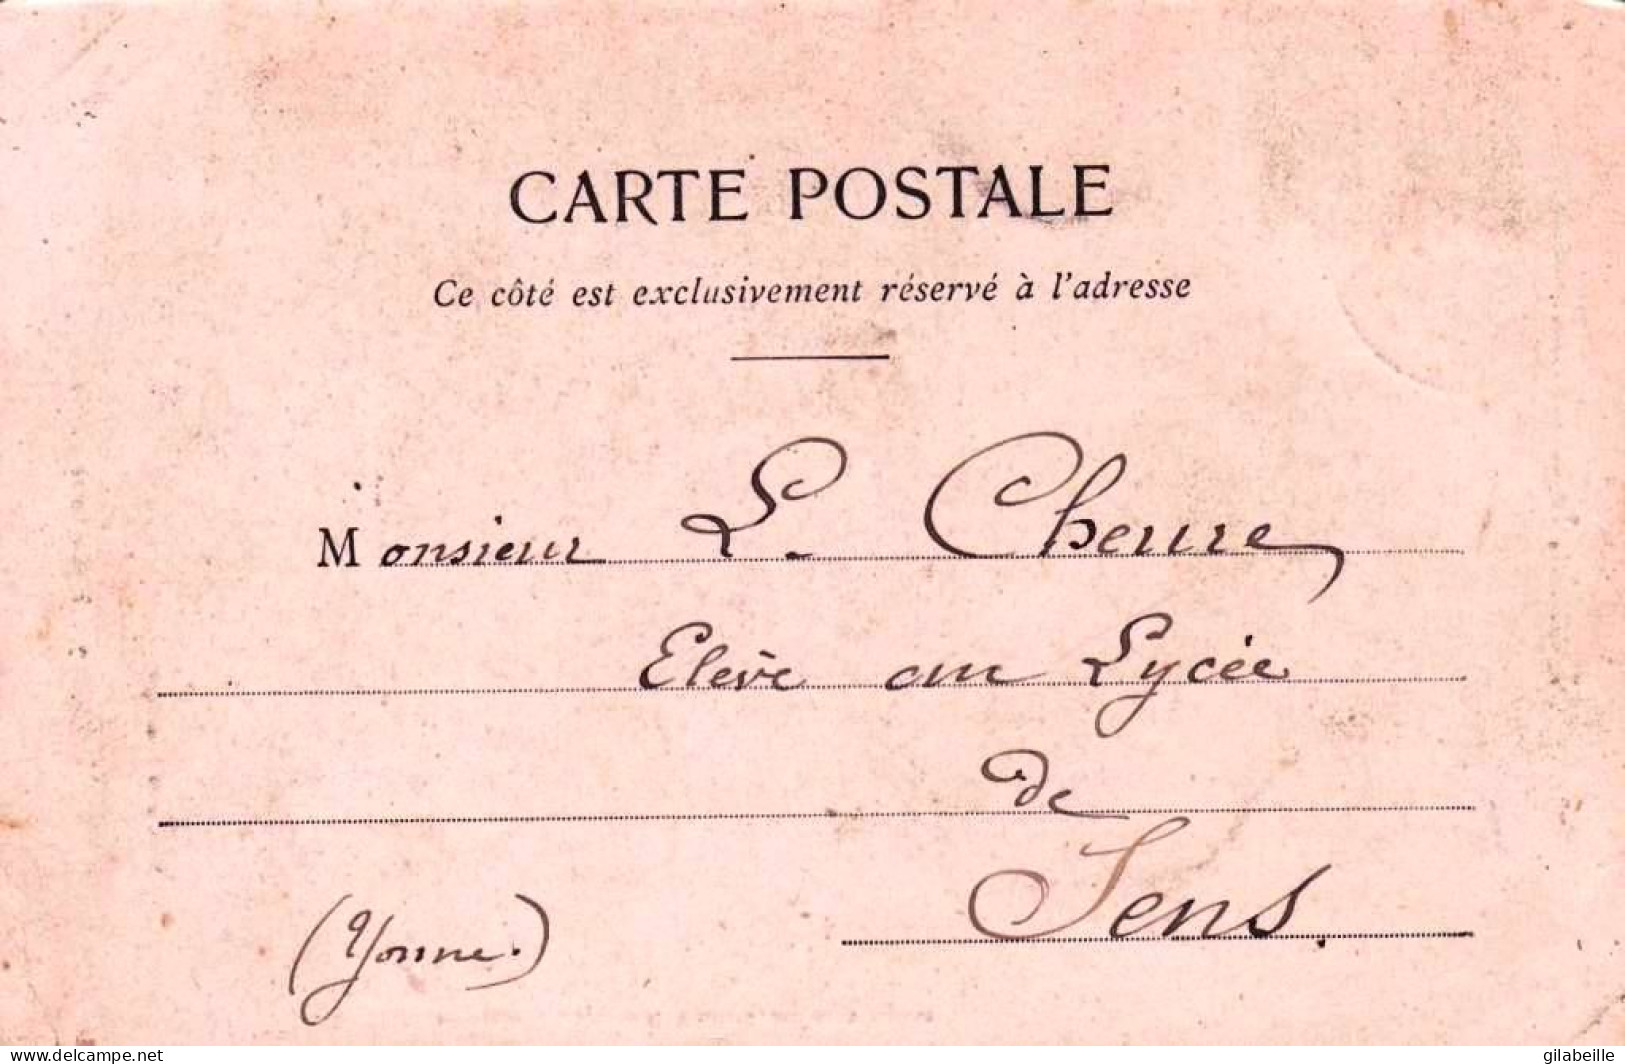 CARTE POSTALE
Ce côté est exclusivement réservé à l'adresse
Monsieur L. Cheure
Elève au Lycée
de
Sens.
(Yonne.)
www.delcampe.net
gilabeille